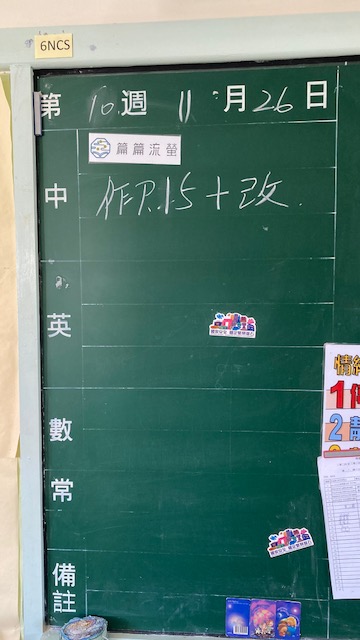 6NCS
第 10 週 11 月 26 日
篇篇流螢
中 作P.15+改.
英
數
常
備
註
情緒
1
2